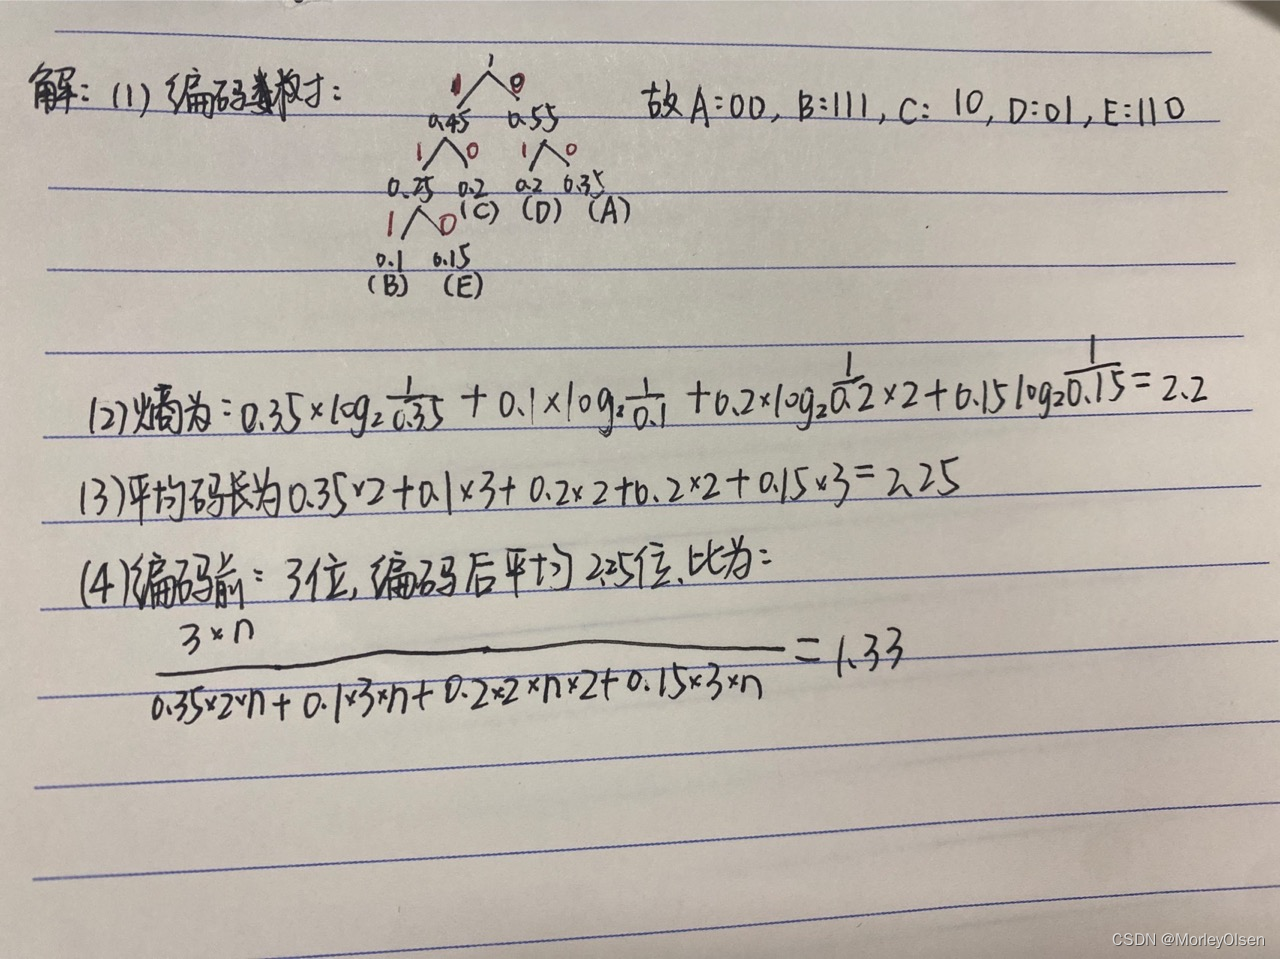 解：(1) 编码数树寸：
故 A:00, B:111, C: 10, D:01, E:110
1 0
0.45 0.55
1 0 1 0
0.25 0.2 0.2 0.35
(C) (D) (A)
1 0
0.1 0.15
(B) (E)
(2)熵为：0.35×log₂ 1/0.35 + 0.1×log₂ 1/0.1 + 0.2×log₂ 1/0.2 ×2 + 0.15 log₂ 1/0.15 = 2.2
(3)平均码长为0.35×2+0.1×3+0.2×2+0.2×2+0.15×3=2.25
(4)编码前：3位，编码后平均2.25位、比为：
3×n
0.35×2×n+0.1×3×n+0.2×2×n×2+0.15×3×n = 1.33
CSDN @MorleyOlsen